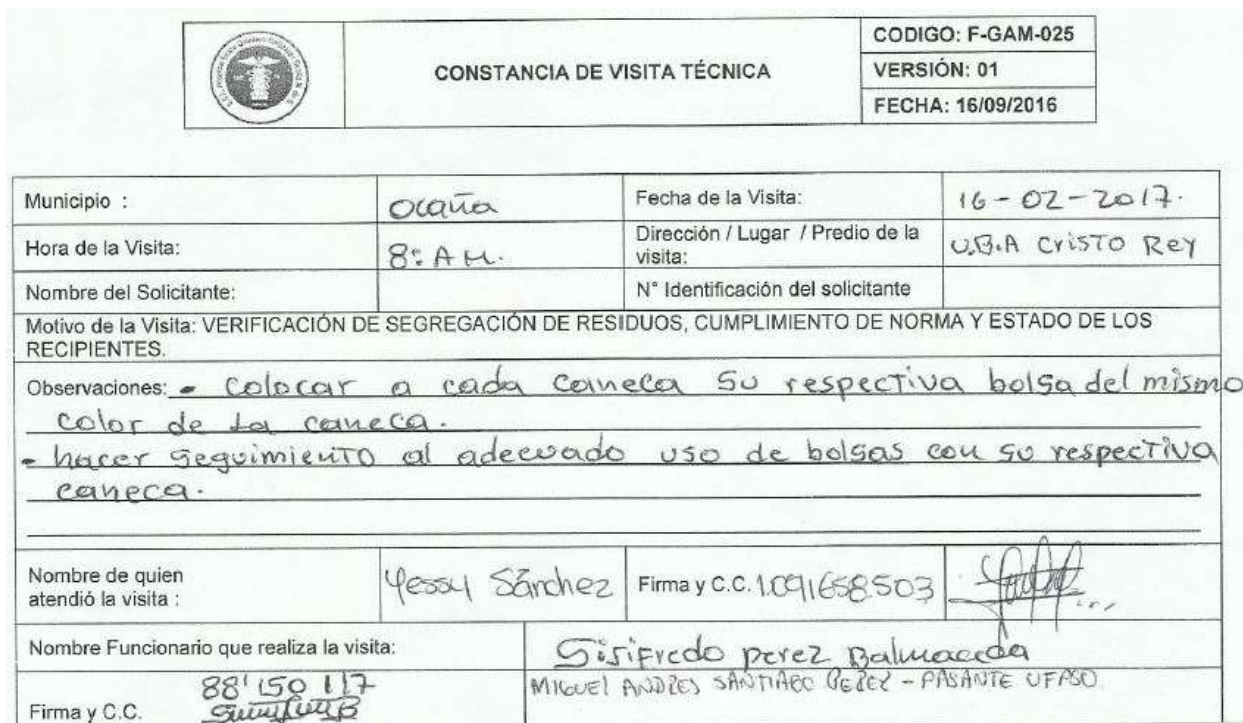 CONSTANCIA DE VISITA TÉCNICA
CODIGO: F-GAM-025
VERSIÓN: 01
FECHA: 16/09/2016
Municipio : Ocaña Fecha de la Visita: 16-02-2017.
Hora de la Visita: 8:AM. Dirección / Lugar / Predio de la visita: U.B.A Cristo Rey
Nombre del Solicitante: N° Identificación del solicitante
Motivo de la Visita: VERIFICACIÓN DE SEGREGACIÓN DE RESIDUOS, CUMPLIMIENTO DE NORMA Y ESTADO DE LOS
RECIPIENTES.
Observaciones: - Colocar a cada caneca su respectiva bolsa del mismo
color de la caneca.
- hacer seguimiento al adecuado uso de bolsas con su respectiva
caneca.
Nombre de quien atendió la visita : Yessy Sánchez Firma y C.C. 1.091658.503
Nombre Funcionario que realiza la visita: Sisifredo perez Balmaceda
MIGUEL ANDRES SANTIAGO - PASANTE UFPSO
88'150 117
Firma y C.C.